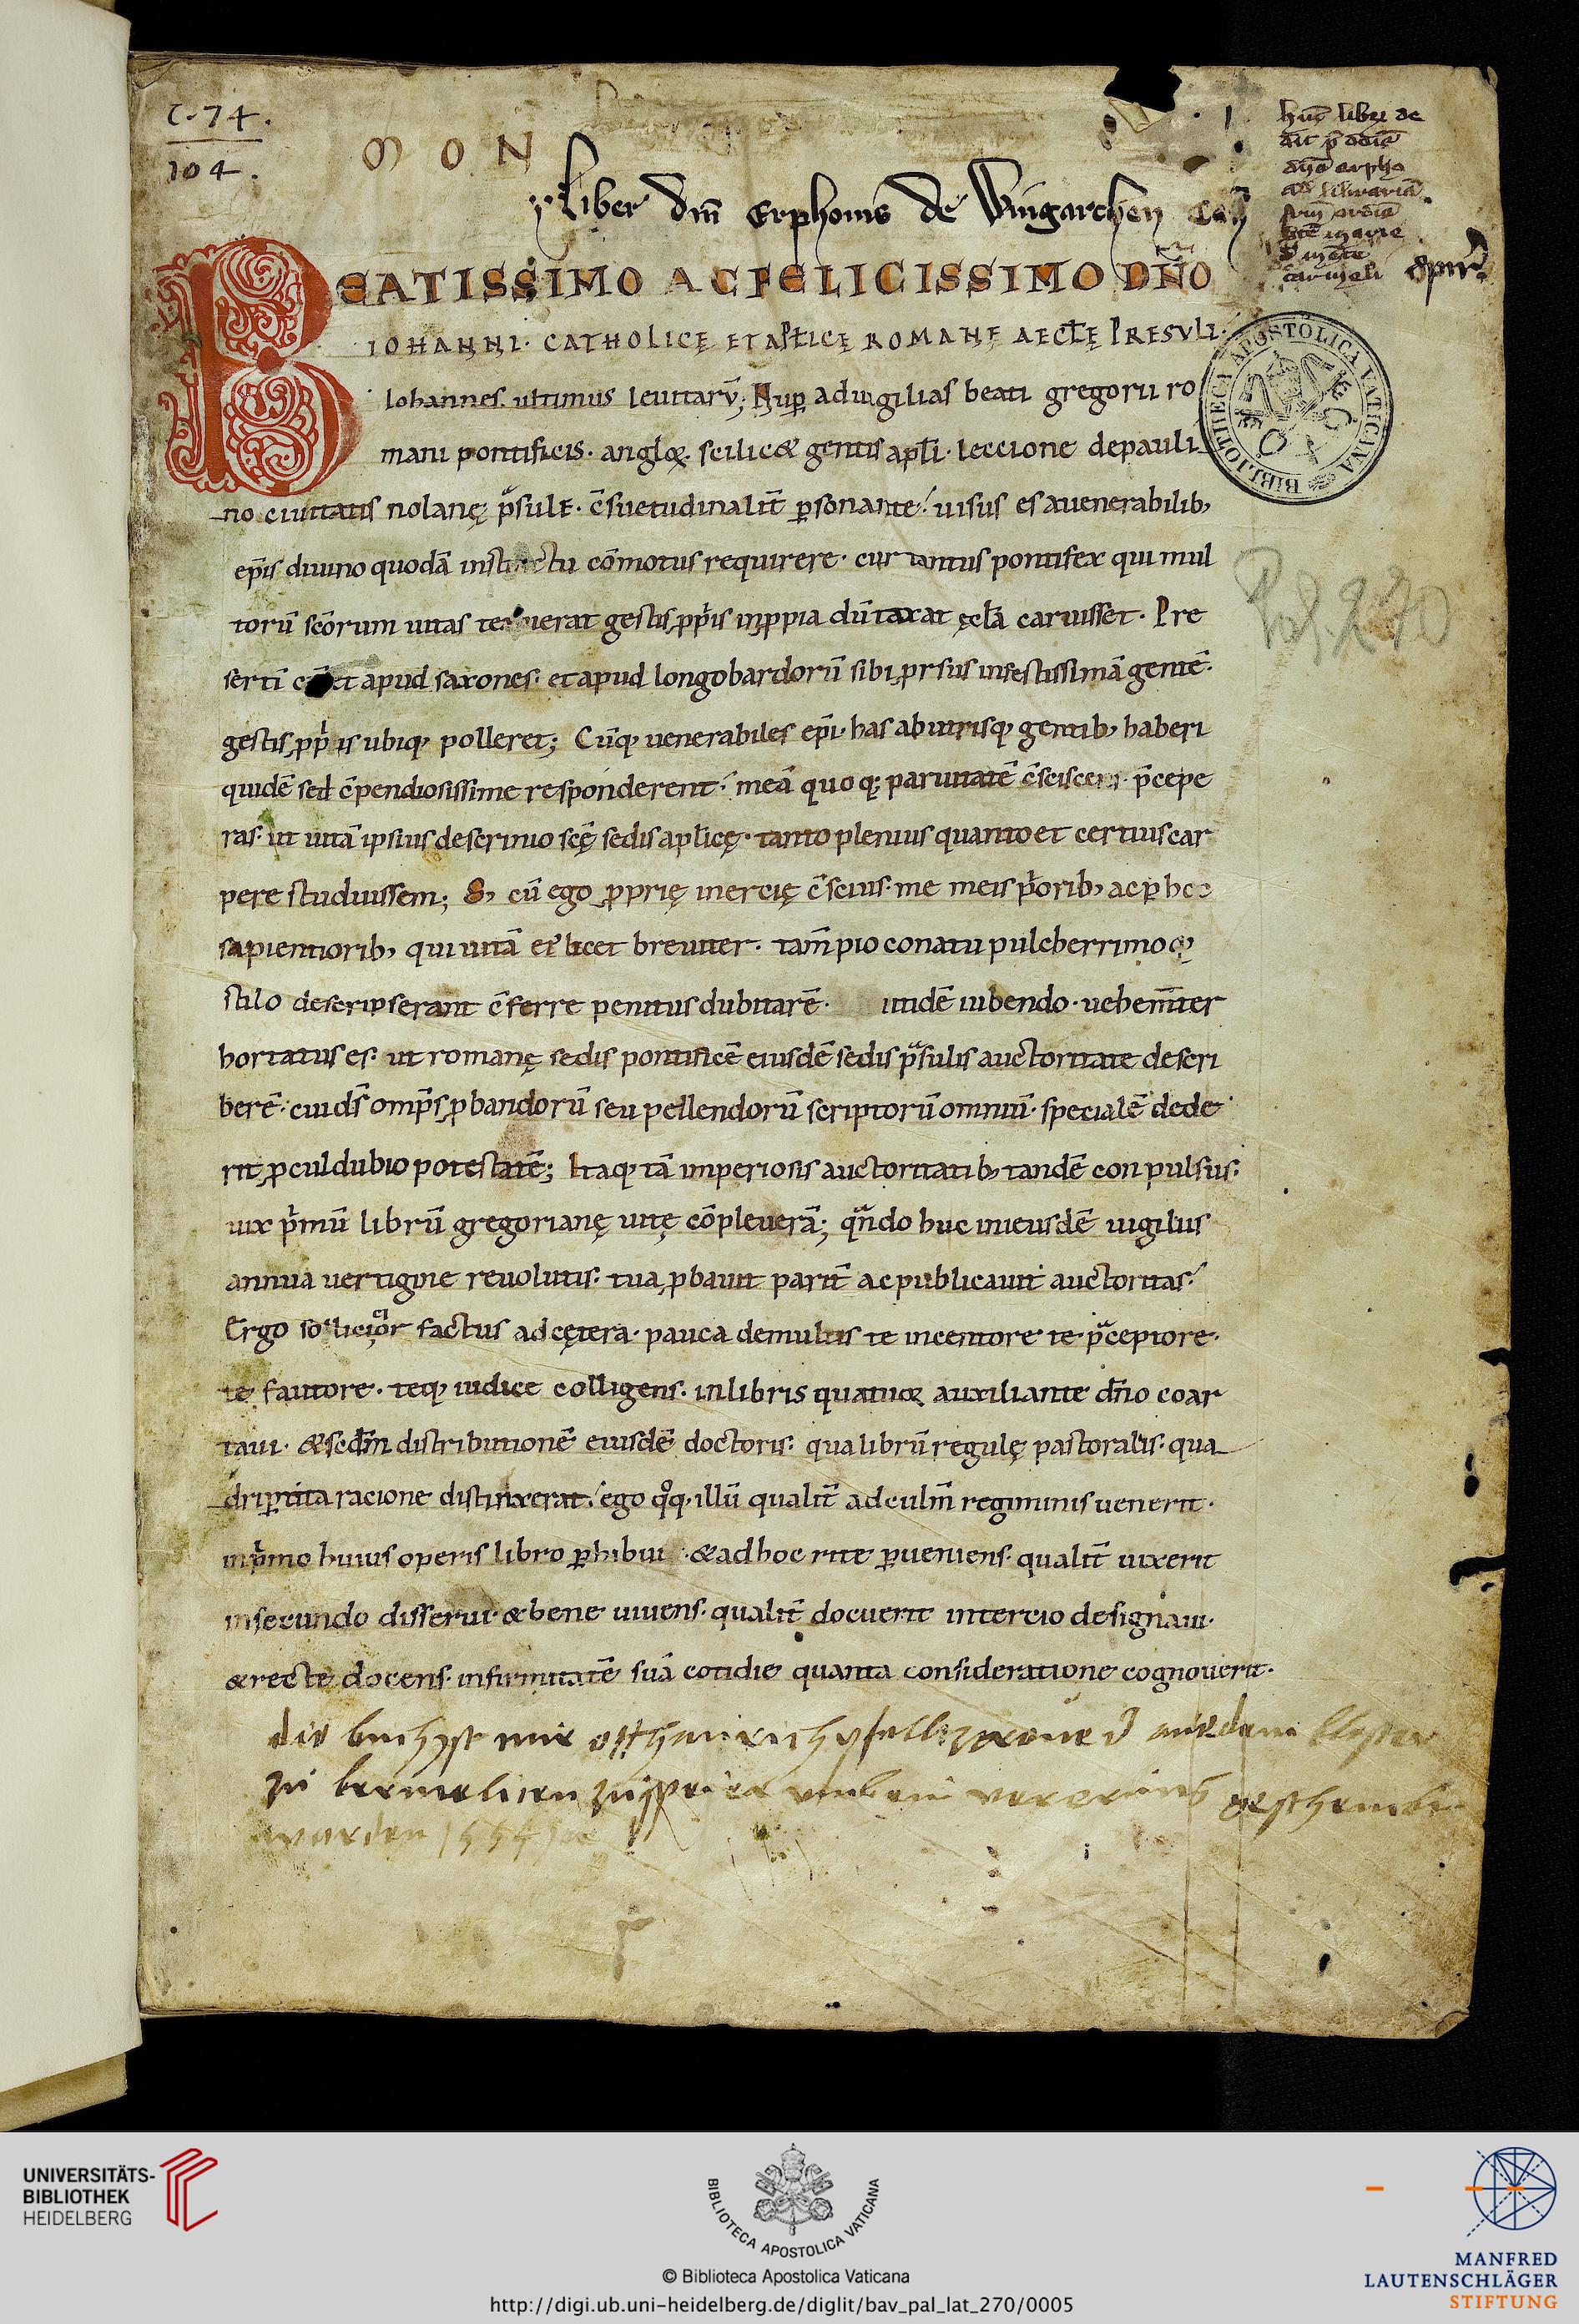 C. 74.
104.
M O N
Liber dn̄i Erphonis de Wingarthen
hūc librū de
dit
erpho
ad librariā
marie
carmeli
BEATISSIMO AC FELICISSIMO DN̄O
IOHANNI· CATHOLICĘ ET APL̄ICĘ ROMANĘ AECL̄Ę PRESVLI·
Iohannes ultimus leuitarū; Nuꝑ ad uigilias beati gregorii ro
mani pontificis· angloꝝ scilic& gentis apl̄i· leccione de pauli
no ciuitatis nolanę p̄sule· c̄suetudinalit̄ ꝑsonante· uisus es a uenerabilib;
ep̄is diuino quodā instinctu cōmotus requirere· cur tantus pontifex qui mul
torū sc̄orum uitas texuerat gestis ꝓpriis in ꝓpia dūtaxat ęcl̄a caruisset· Pre
sertī et apud saxones· et apud longobardorū sibi ꝓrsus infestissimā gentē·
gestis ꝓpriis ubiq; polleret; Cūq; uenerabiles ep̄i· has ab utrisq; gentib; haberi
quidē sed c̄pendiosissime responderent· meā quoq; paruitatē p̄cepe
ras· ut uitā ipsius de scrinio sc̄ę sedis apl̄icę· tanto plenius quanto et certius car
pere studuissem; S; cū ego ꝓprię inercię c̄scius· me meis p̄orib; ac ꝑ hoc
sapientiorib; qui uitā ei licet breuiter· tam̄ pio conatu pulcherrimoq;
stilo descripserant c̄ferre penitus dubitarē· itidē iubendo· uehem̄ter
hortatus es· ut romanę sedis pontificē eiusdē sedis p̄sulis auctoritate descri
berē· cui dn̄s omp̄s ꝓbandorū seu pellendorū scriptorū omniū· specialē dede
rit ꝓculdubio potestatē; Itaq; tā imperiosis auctoritatib; tandē conpulsus·
uix p̄mū librū gregorianę uitę cōpleuerā; qn̄do huc in eiusdē uigiliis
annua uertigine reuolutis· tua ꝓbauit parit̄ ac publicauit auctoritas·
Ergo sollicicior factus ad cętera· pauca de multis te incentore te p̄ceptore·
te fautore· teq; iudice colligens· in libris quatuoꝝ auxiliante dn̄o coar
taui· & sedm̄ distributionē eiusdē doctoris· qua librū regulę pastoralis· qua
driꝑtita racione distinxerat· ego qͦq; illū qualit̄ ad culm̄ regiminis uenerit·
in p̄mo huius operis libro ꝑhibui· & ad hoc rite ꝑueniens· qualit̄ uixerit
in secundo disserui· & bene uiuens· qualit̄ docuerit in tercio designaui·
& recte docens· infirmitatē suā cotidie quanta consideratione cognouerit·
Pal. 270
dis buch yst mir ottheinrich pfaltzgraue auß dem kloster
zu karmeliten zu speier umb ein vererung geschenckt
worden
BIBLIOTHECA APOSTOLICA VATICANA
UNIVERSITÄTS-
BIBLIOTHEK
HEIDELBERG
BIBLIOTECA APOSTOLICA VATICANA
© Biblioteca Apostolica Vaticana
http://digi.ub.uni-heidelberg.de/diglit/bav_pal_lat_270/0005
MANFRED
LAUTENSCHLÄGER
STIFTUNG